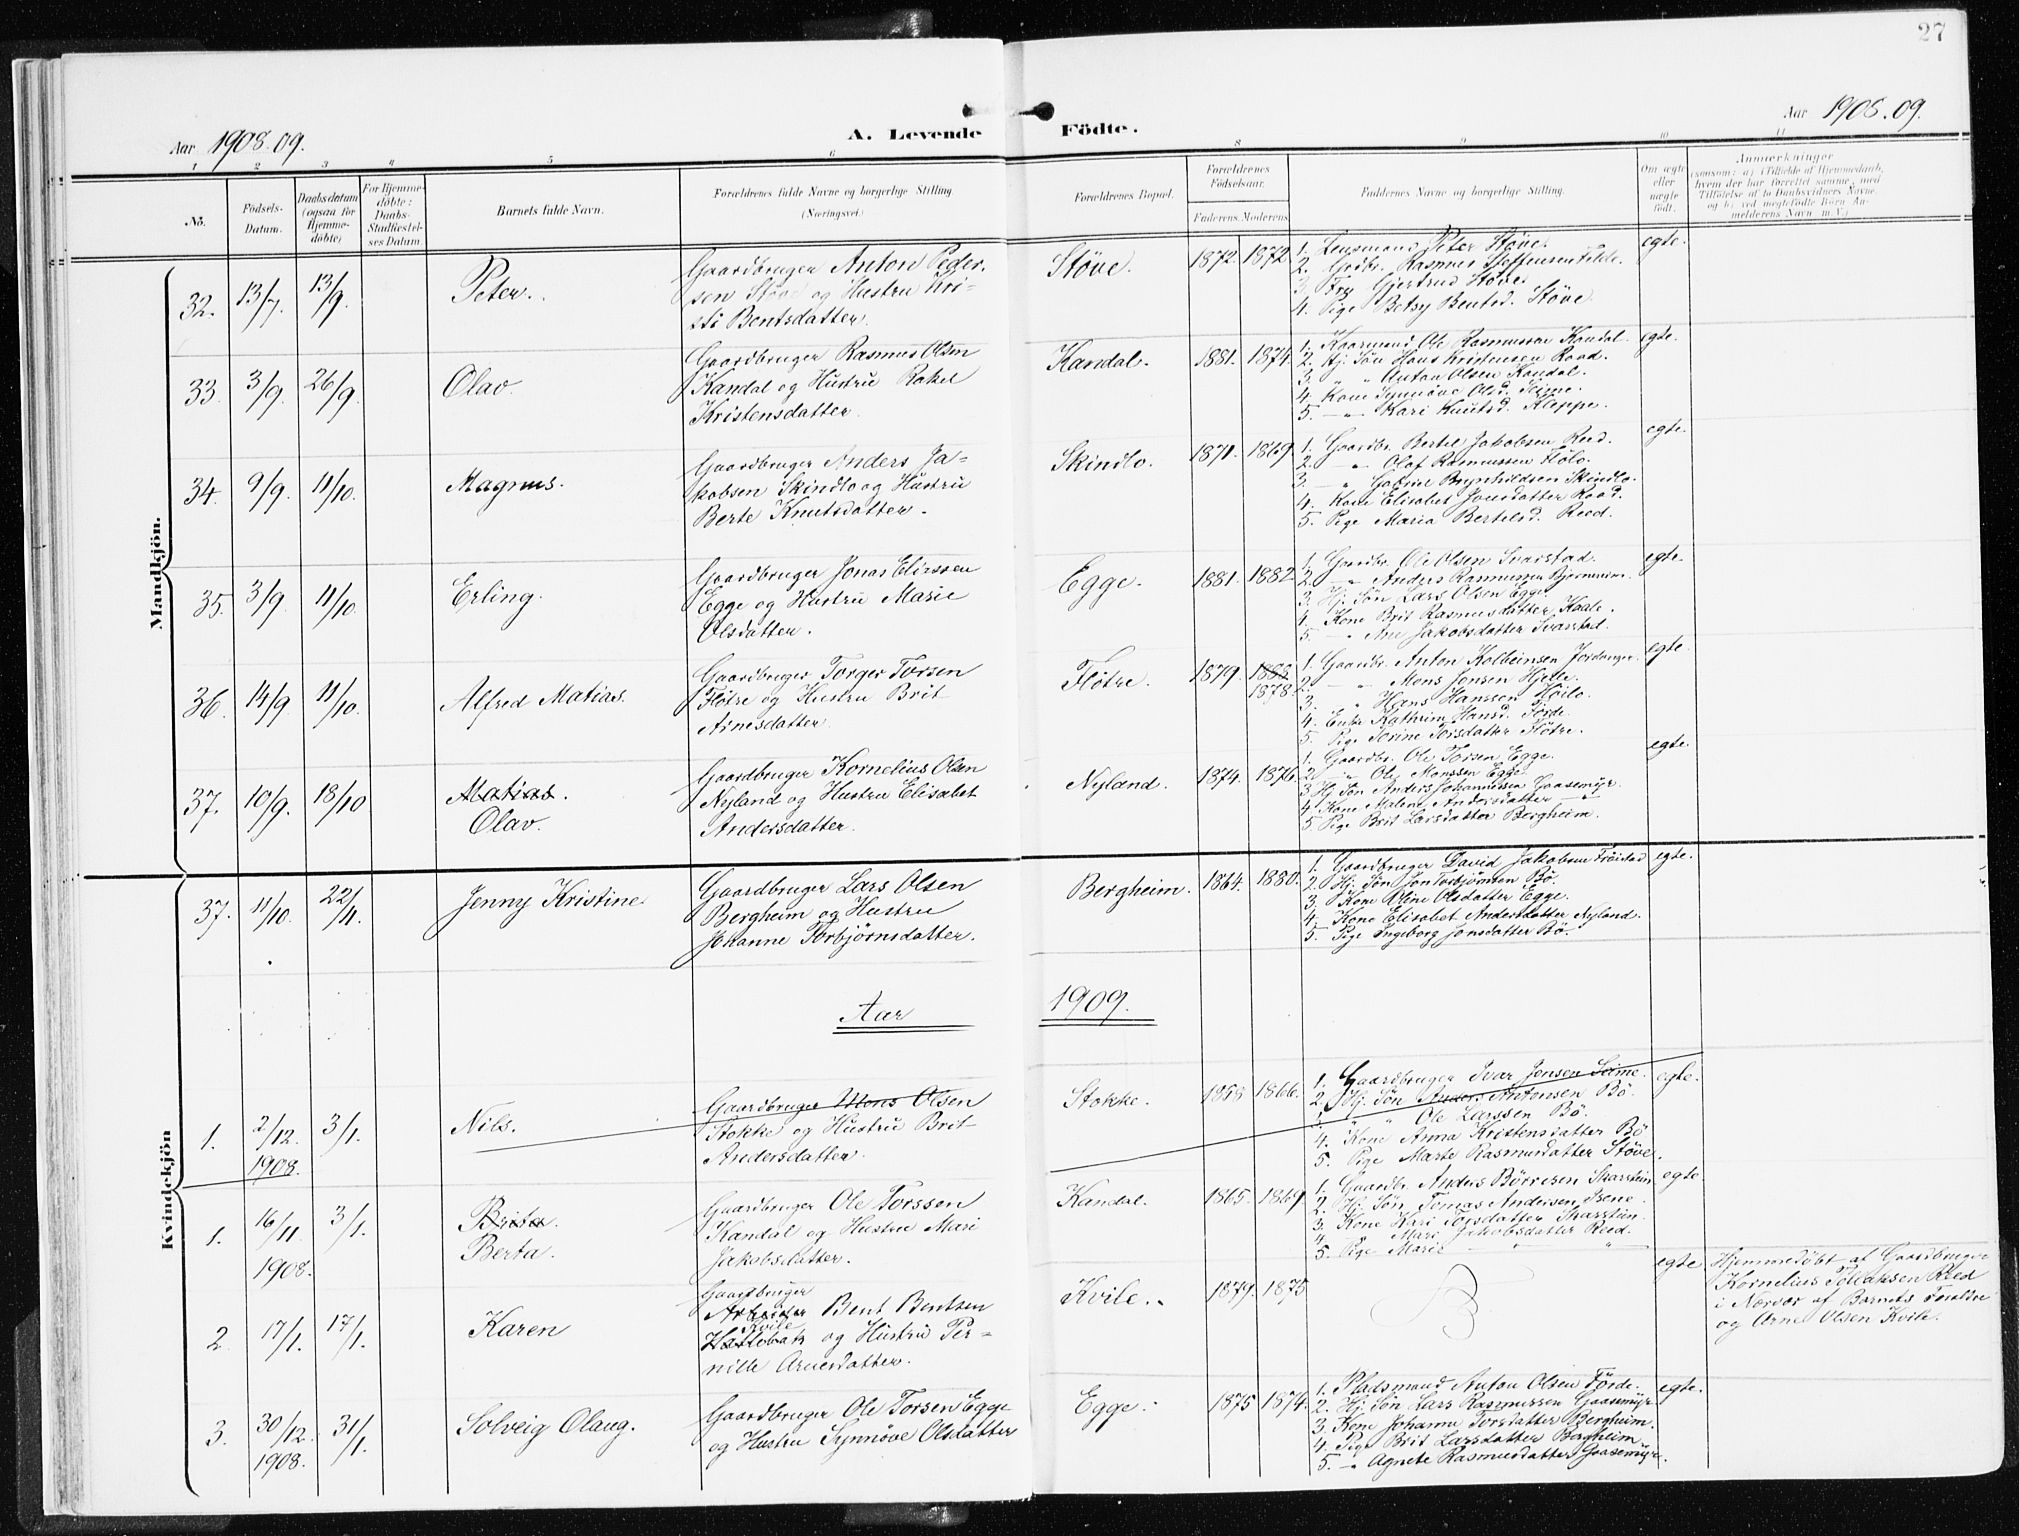 27
Aar 1908.09.
A. Levende Födte.
Aar 1908.09.
1 2 3 4 5 6 8 9 10 11
No.
Födsels-Datum.
Daabsdatum (ogsaa for Hjemme-döbte)
For Hjemme-döbte: Daabs-Stadfæstel-ses Datum
Barnets fulde Navn.
Forældrenes fulde Navne og borgerlige Stilling. (Næringsvei.)
Forældrenes Bopæl.
Forældrenes Födselsaar.
Faderens. Moderens.
Faddernes Navne og borgerlige Stilling.
Om ægte eller uægte födt.
Anmærkninger
(saasom: a) i Tilfælde af Hjemmedaab,
hvem der har forrettet samme, med
Tilföielse af to Daabsvidners Navne,
og b) ved uægtefödte Börn An-
melderens Navn m. V.)
Mandkjön.
32. 13/7. 13/9. Peter.
Gaardbruger Anton Peder-
sen Støve og Hustru Kri-
sti Bentsdatter.
Støve. 1872. 1872
1. Lensmand Peter Støve.
2. Grdbr. Rasmus Steffensen Tilde.
3. Fru Gjertrud Støve.
4. Pige Betsy Bentsd. Støve.
egte.
33. 3/9. 26/9. Olav.
Gaardbruger Rasmus Olsen
Kandal og Hustru Rakel
Kristensdatter.
Kandal. 1881. 1874.
1. Kaarmand Ole Rasmussen Kandal.
2. Hj. Søn Hans Kristensen Raad.
3. " " Anton Olsen Kandal.
4. Kone Synnøve Olsd. Seime.
5. — " — Kari Knutsd. Kleppe.
egte.
34. 9/9. 11/10. Magnus.
Gaardbruger Anders Ja-
kobsen Skindlo og Hustru
Berte Knutsdatter.
Skindlo. 1871. 1869.
1. Gaardbr. Bertel Jakobsen Reed.
2. — " Olaf Rasmussen Flølo.
3. — " Gabriel Brynhildsen Skindlo.
4. Kone Elisabet Jonsdatter Raad.
5. Pige Maria Bertelsd. Reed.
egte.
35. 3/9. 11/10. Erling.
Gaardbruger Jonas Eliassen
Egge og Hustru Marie
Olsdatter.
Egge. 1881. 1882.
1. Gaardbr. Ole Olsen Svarstad.
2. — " Anders Rasmussen Bjerneseim.
3. Hj. Søn Lars Olsen Egge.
4. Kone Brit Rasmusdatter Kaale.
5. — " Ane Jakobsdatter Svarstad.
egte.
36. 14/9. 11/10. Alfred Matias.
Gaardbruger Torger Torsen
Fløtre og Hustru Brit
Arnesdatter.
Fløtre. 1879. 1888. 1878.
1. Gaardbr. Anton Kolbeinsen Jordanger.
2. — " Mons Jensen Hjelle.
3. " Hans Hanssen Høilo.
4. Enke Kathrine Hansd. Førde.
5. Pige Torine Torsdatter Fløtre.
egte.
37. 10/9. 18/10 Matias. Olav.
Gaardbruger Kornelius Olsen
Nyland og Hustru Elisabet
Andersdatter.
Nyland. 1874. 1876.
1. Gaardbr. Ole Torsen Egge.
2. — " Ole Monssen Egge.
3. Hj. Søn Anders Johannessen Gaasemyr.
4. Kone Malene Andersdatter — " —
5. Pige Brit Larsdatter Bergheim.
egte.
Kvindekjön
37. 11/10. 22/11. Jenny Kristine
Gaardbruger Lars Olsen
Bergheim og Hustru
Johanne Torbjørnsdatter.
Bergheim. 1864. 1880.
1. Gaardbruger David Jakobsen Frøistad
2. Hj. Søn Jon Torbjørnsen Bø.
3. Kone Oline Olsdatter Egge.
4. Kone Elisabet Andersdatter Nyland.
5. Pige Ingeborg Jonsdatter Bø.
egte.
Aar 1909.
1. 2/12. 1908. 3/1. Nils.
Gaardbruger Mons Olsen
Stokke og Hustru Brit
Andersdatter.
Stokke. 1866.
1. Gaardbruger Ivar Jensen Seime.
2. Hj. Søn Anders Antonsen Bø.
3. " " Ole Larssen Bø.
4. Kone Anna Kristensdatter Bø
5. Pige Marte Rasmusdatter Støve.
egte.
1. 16/11 1908. 3/1. Brita. Berta.
Gaardbruger Ole Torssen
Kandal og Hustru Mari
Jakobsdatter.
Kandal. 1865. 1869
1. Gaardbr. Anders Børresen Skarstein.
2. Hj. Søn Tomas Andersen Isene.
3. Kone Kari Torsdatter Skarstein.
4. " Mari Jakobsdatter Reed.
5. Pige Marie — " — "
egte
2. 17/1. 17/1. Karen
Gaardbruger
Arbeider Bent Bentsen
Kvile
Hattebak og Hustru Per-
nille Arnesdatter.
Kvile. 1879. 1875
egte
Hjemmedøbt af Gaardbruger
Kornelius Tollaksen Reed
i Nærvær af Barnets Forældre
og Arne Olsen Kvile.
3. 30/12. 1908. 31/1. Solveig Olaug.
Gaardbruger Ole Torsen Egge
og Hustru Synnøve Olsdatter
Egge. 1875 1874.
1. Pladsmand Anton Olsen Førde.
2. Hj. Søn Lars Rasmussen Gaasemyr
3. Kone Johanne Torsdatter Bergheim.
4. Pige Brit Larsdatter Bergheim
5. — " Agnete Rasmusdatter Gaasemyr.
egte.